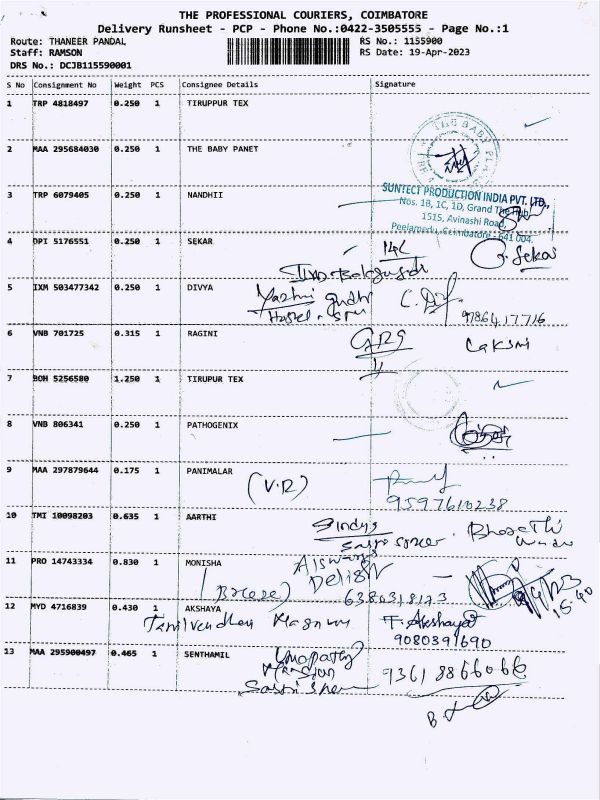 THE PROFESSIONAL COURIERS, COIMBATORE
Delivery Runsheet - PCP - Phone No.:0422-3505555 - Page No.:1
Route: THANEER PANDAL RS No.: 1155900
Staff: RAMSON RS Date: 19-Apr-2023
DRS No.: DCJB115590001
S No Consignment No Weight PCS Consignee Details Signature
1 TRP 4818497 0.250 1 TIRUPPUR TEX
2 MAA 295684030 0.250 1 THE BABY PANET
THE BABY
3 TRP 6079405 0.250 1 NANDHII
SUNTECT PRODUCTION INDIA PVT. LTD.,
Nos. 1B, 1C, 1D, Grand The Hub
1515, Avinashi Road,
Peelamedu, Coimbatore - 641 004.
4 DPI 5176551 0.250 1 SEKAR
Sekar
5 IXM 503477342 0.250 1 DIVYA
9786417716
6 VNB 701725 0.315 1 RAGINI
GRG Laksmi
7 BOH 5256580 1.250 1 TIRUPUR TEX
8 VNB 806341 0.250 1 PATHOGENIX
9 MAA 297879644 0.175 1 PANIMALAR
(V.R)
9597610238
10 TMI 10098203 0.635 1 AARTHI
Bharathi
11 PRO 14743334 0.830 1 MONISHA
Aiswarya
Delish
6380318173
15:40
12 MYD 4716839 0.430 1 AKSHAYA
Tamilvendhan Magnum T. Akshaya
9080391690
13 MAA 295900497 0.465 1 SENTHAMIL
Umapathy
Mansion
9361886606